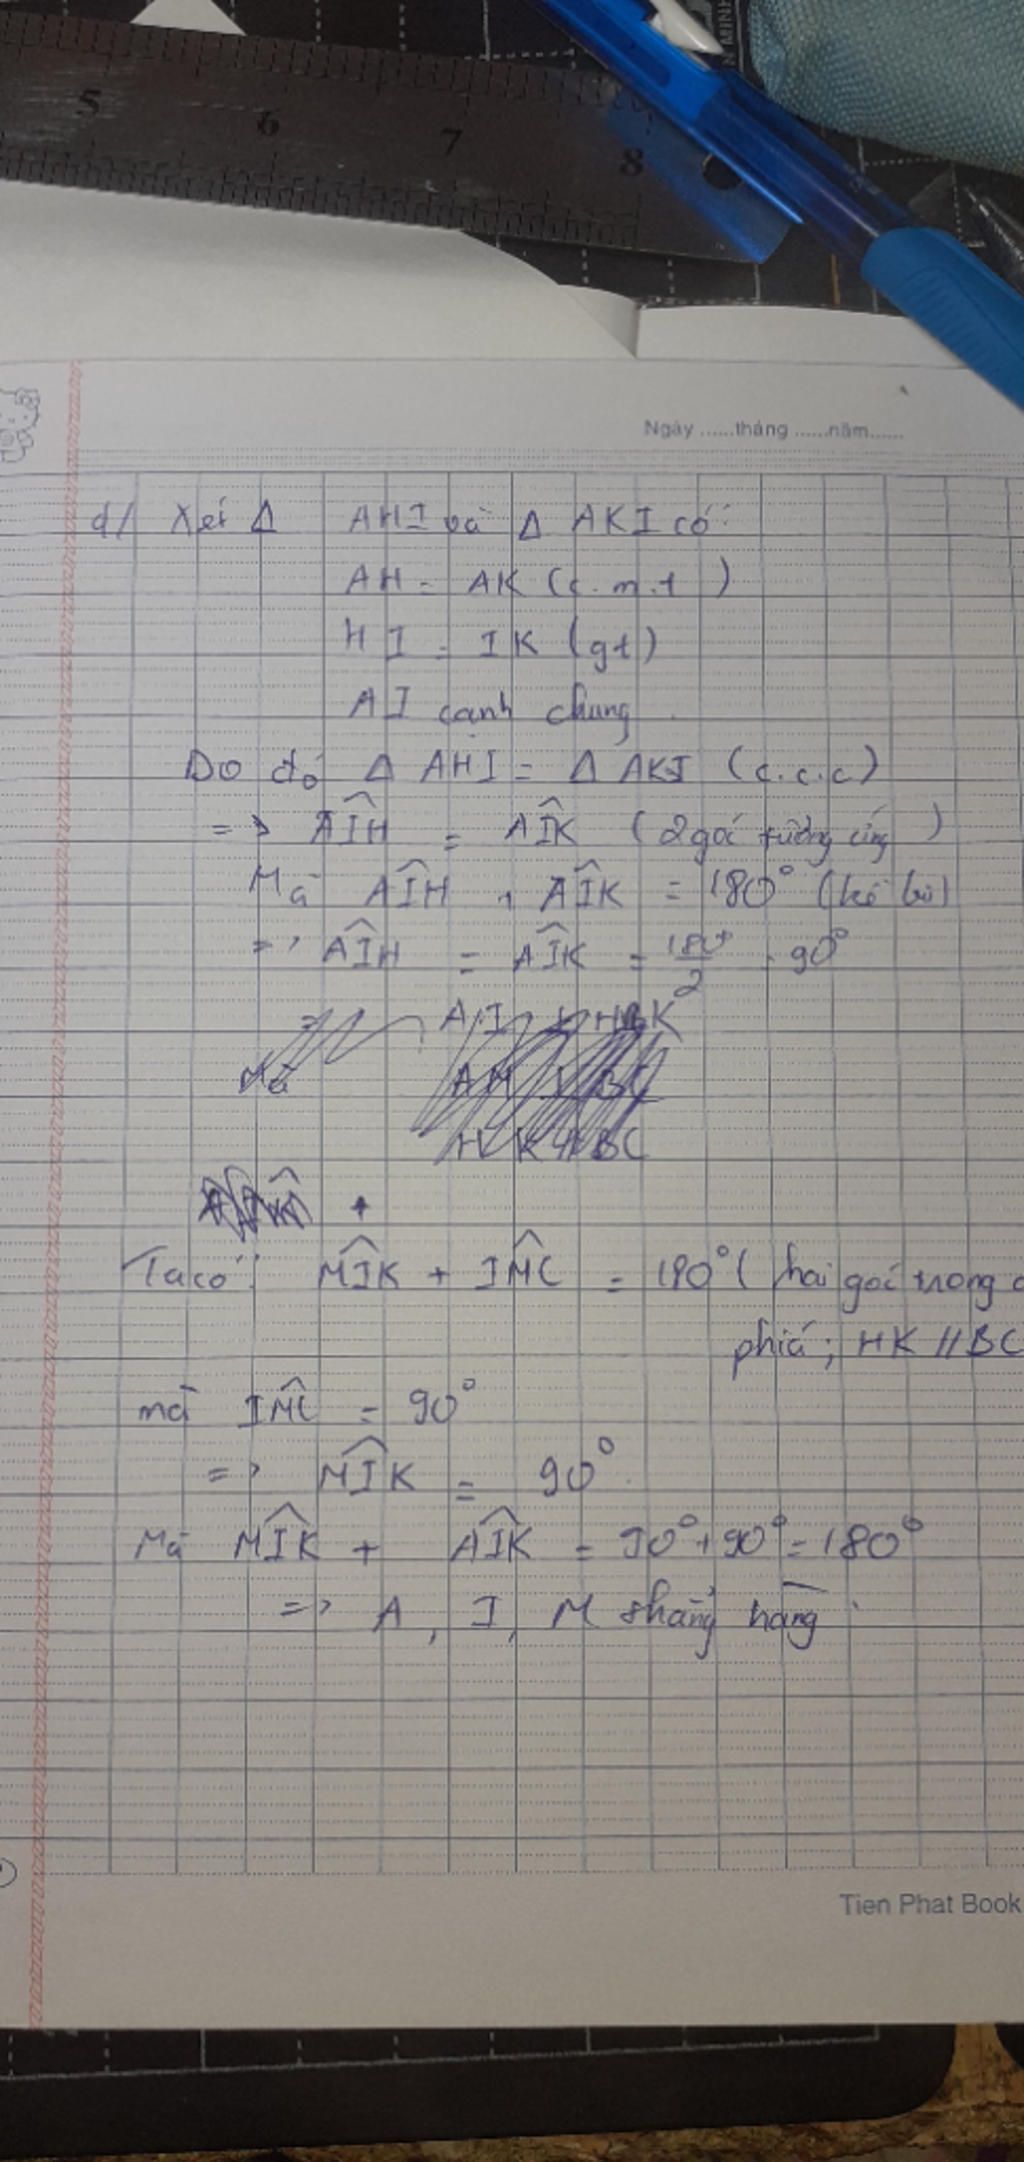 5 6 7 8
MINH
Ngày ......tháng ......năm......
d/ Xét Δ AHI và Δ AKI có:
AH = AK (c.m.t)
HI = IK (gt)
AI cạnh chung
Do đó Δ AHI = Δ AKI (c.c.c)
=> AÎH = AÎK (2 góc tương ứng)
Mà AÎH + AÎK = 180° (kề bù)
=> AÎH = AÎK = 180°/2 = 90°
AI ⊥ HK
Mà AH ⊥ BC
HK // BC
+
Ta có: MÎK + IM̂C = 180° (hai góc trong c
phía; HK // BC
mà IM̂C = 90°
=> MÎK = 90°.
Mà MÎK + AÎK = 90° + 90° = 180°
=> A, I, M thẳng hàng.
Tien Phat Book